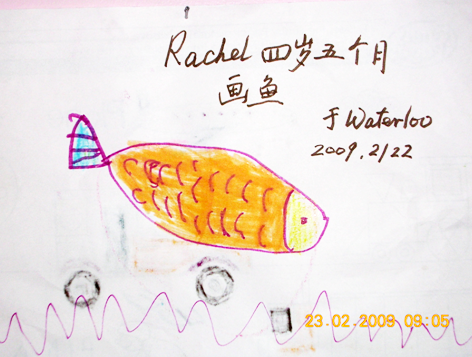 Rachel 四岁五个月
画鱼
于 Waterloo
2009.2/22
23.02.2009 09:05